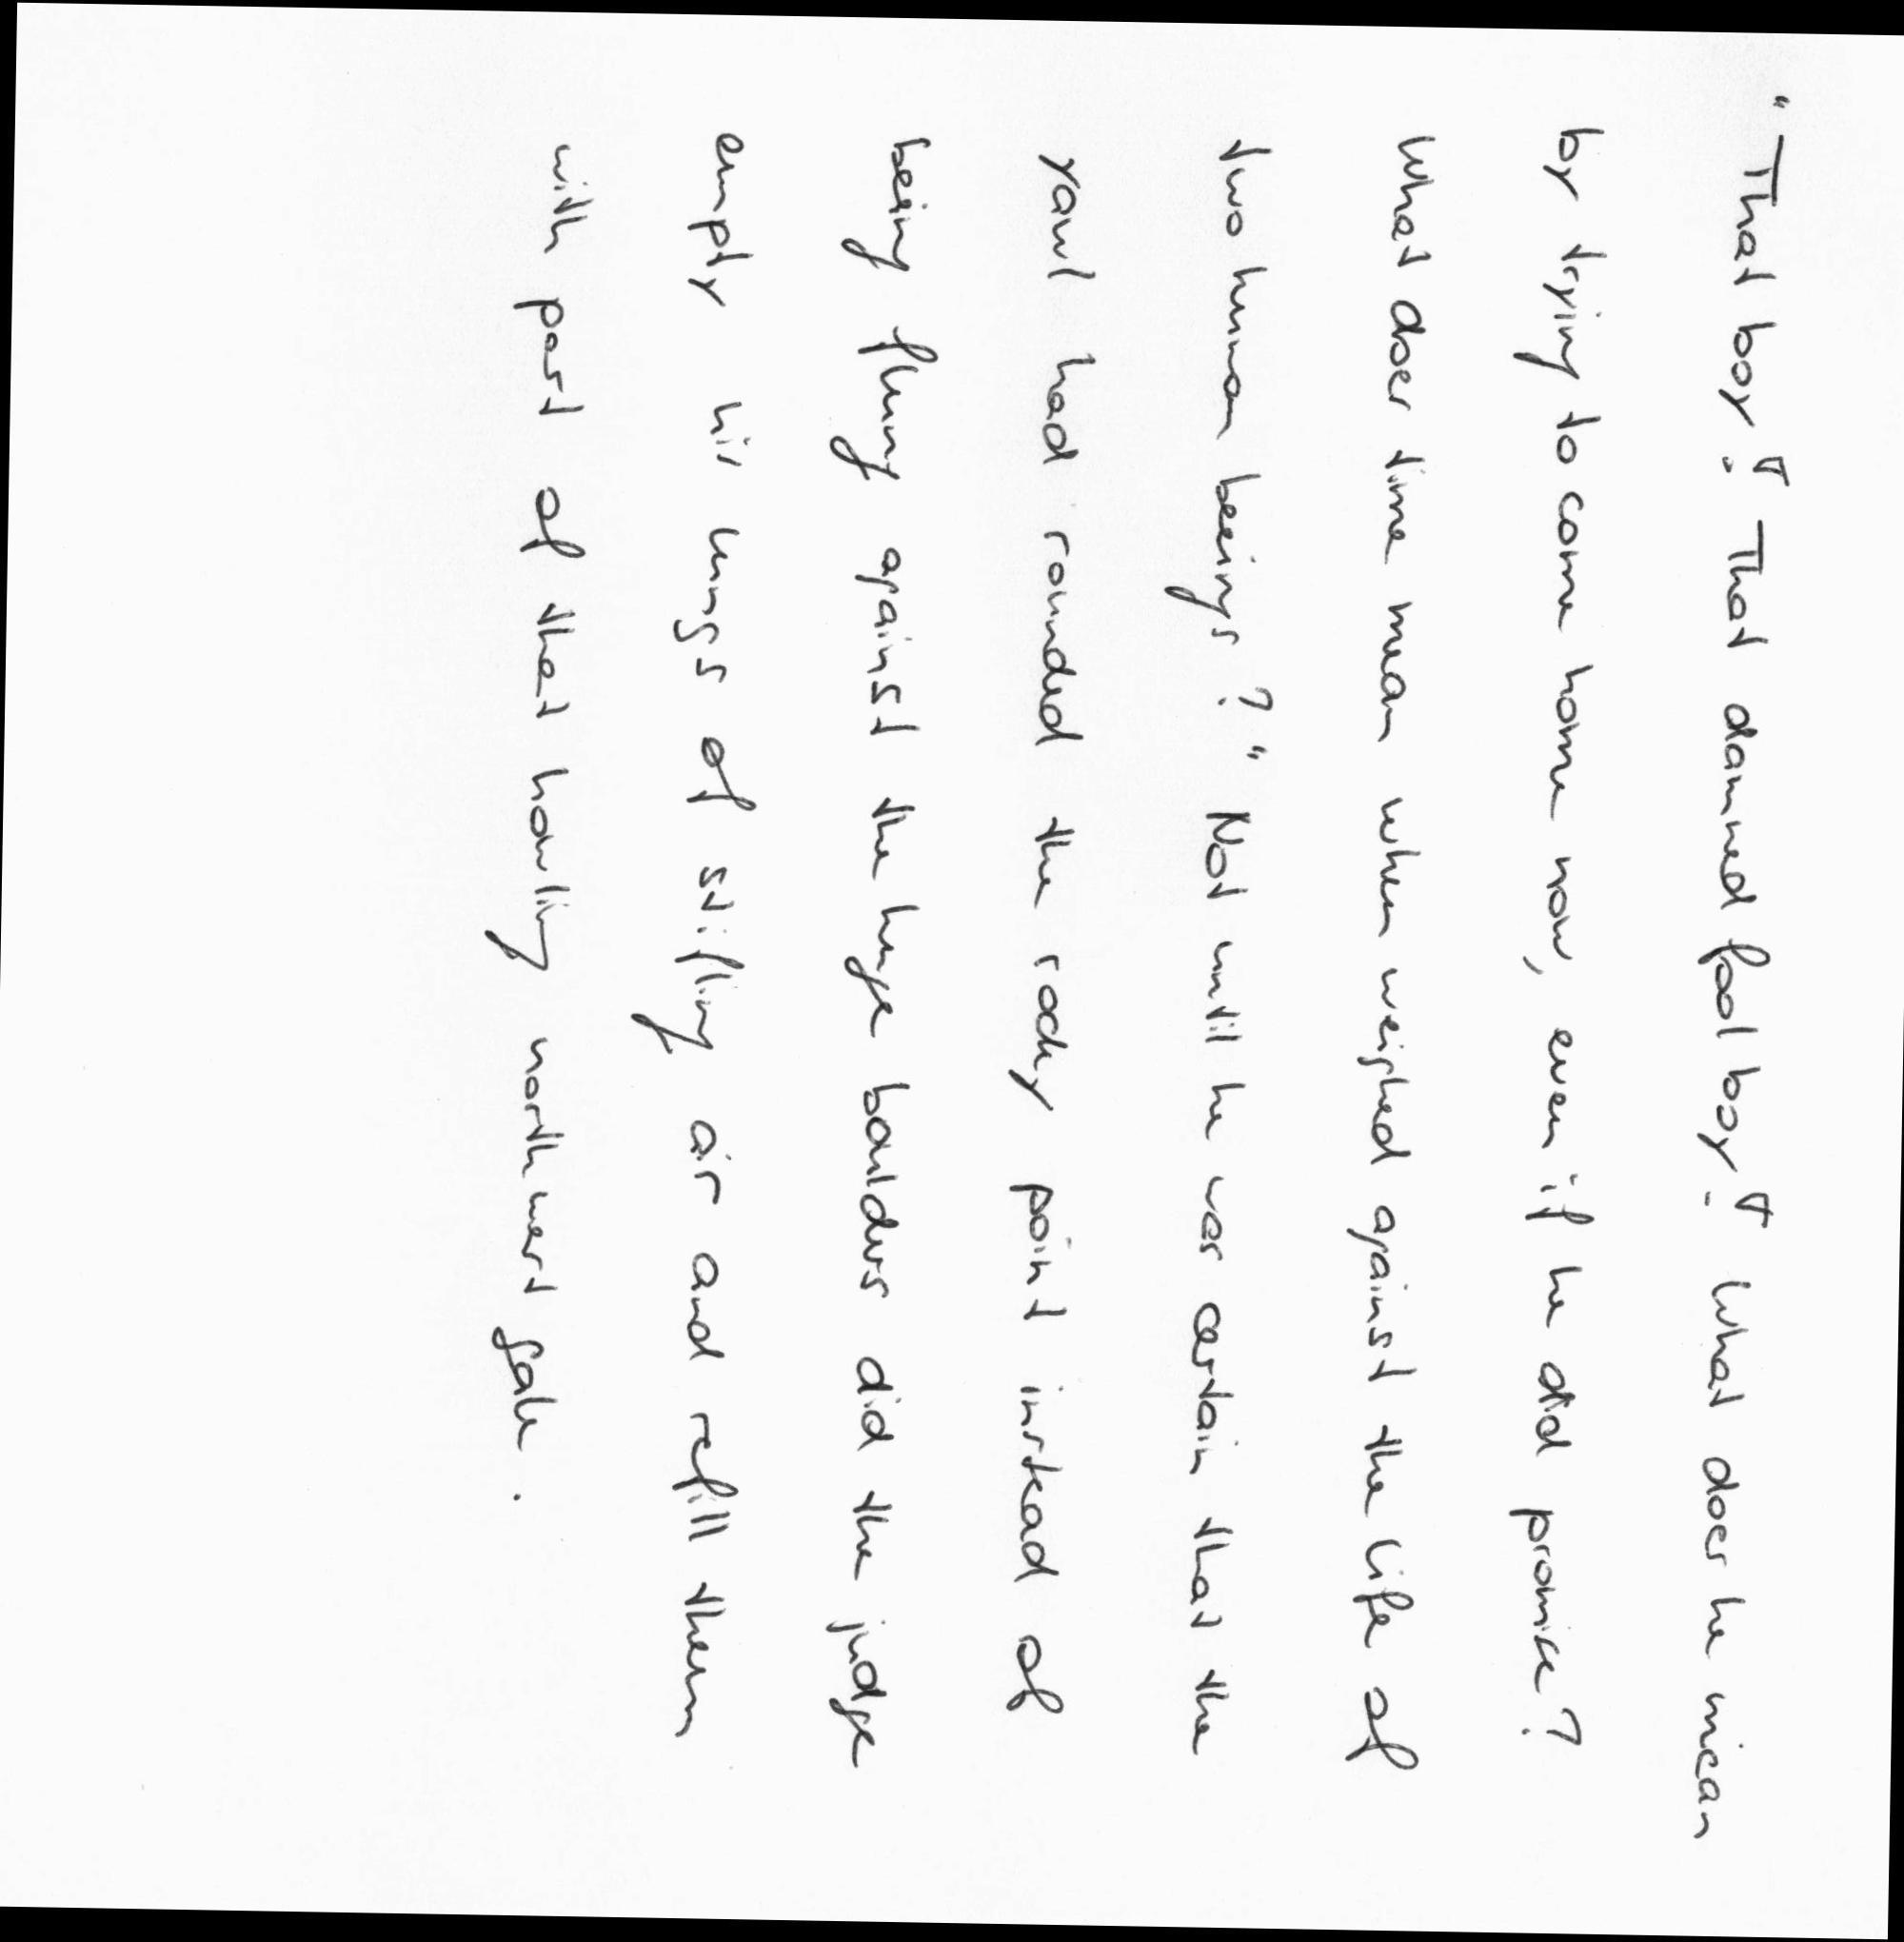 "That boy! That damned fool boy! What does he mean
by trying to come home now, even if he did promise?
What does time mean when weighed against the life of
two human beings?" Not until he was certain that the
yawl had rounded the rocky point instead of
being flung against the huge boulders did the judge
empty his lungs of stifling air and refill them
with part of that howling northwest gale.